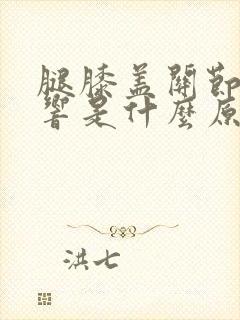 腿膝盖關節
響是什麼原
洪七